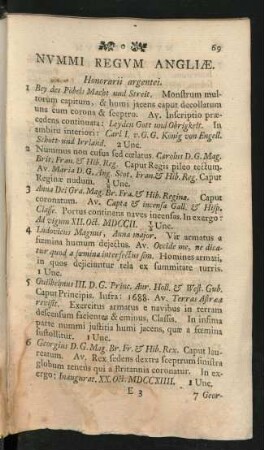 69
NVMMI REGVM ANGLIÆ.
Honorarii argentei.
1 Bey des Pöbels Macht und Streit. Monstrum mul-
torum capitum, & humi jacens caput decollatum
una cum corona & sceptro. Av. Inscriptio præ-
cedens continuata: Leyden Gott und Obrigkeit. In
ambitu interiori: Carl I. v. G. G. König von Engell.
Schott- und Irrland. 2 Unc.
2 Nummus non cusus sed cælatus. Carolus D. G. Mag.
Brit. Fran. & Hib. Reg. Caput Regis pileo tectum.
Av. Maria D. G. Ang. Scot. Fran. & Hib. Reg. Caput
Reginæ nudum. ½ Unc.
3 Anna Dei Gra. Mag. Br. Fra. & Hib. Regina. Caput
coronatum. Av. Capta & incensa Gall. & Hisp.
Classe. Portus continens naves incensas. In exergo:
Ad vigum XII. Oct. MDCCII. ½ Unc.
4 Ludovicus Magnus, Anna major. Vir armatus a
fœmina humum dejectus. Av. Occide me, ne dica-
tur quod a fœmina interfectus sim. Homines armati,
in quos dejiciuntur tela ex summitate turris.
1 Unc.
5 Guilhelmus III. D. G. Princ. Aur. Holl. & West. Gub.
Caput Principis. Infra: 1688. Av. Terras Astræa
revisit. Exercitus armatus e navibus in terram
descensum faciens & eminus, Classis. In infima
parte nummi justitia humi jacens, quæ a fœmina
sustollitur. 1 Unc.
6 Georgius D. G. Mag. Br. Fr. & Hib. Rex. Caput lau-
reatum. Av. Rex sedens dextra sceptrum sinistra
globum tenens qui a Britannia coronatur. In ex-
ergo: Inaugurat. XX. Oct. MDCCXIIII. 1 Unc.
E 3
7 Geor-